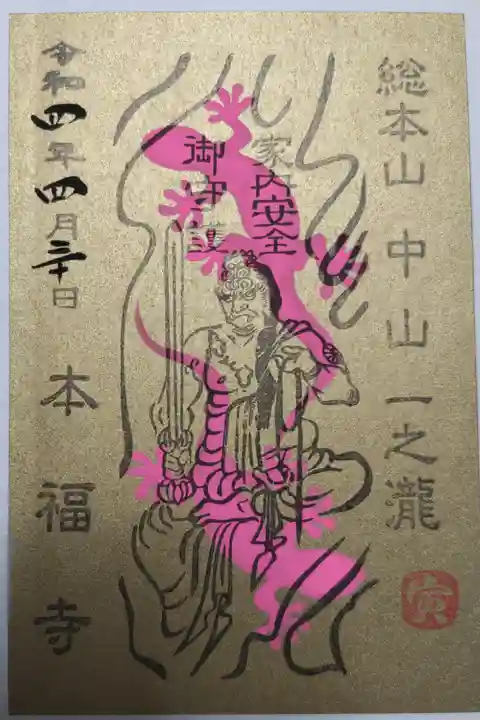 総本山中山一之瀧
家内安全
御守護
令和四年四月三十日
本福寺
寅